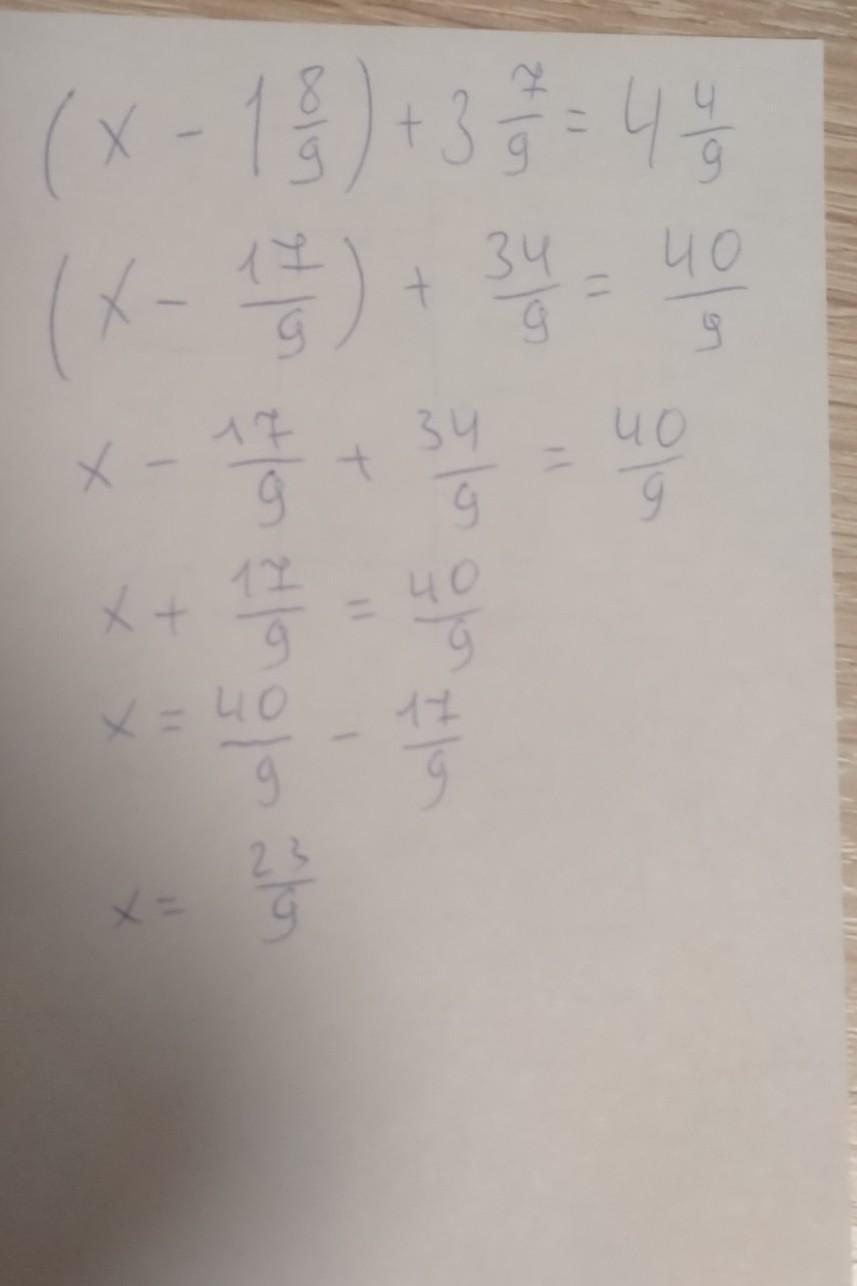 (x - 1 8/9) + 3 7/9 = 4 4/9
(x - 17/9) + 34/9 = 40/9
x - 17/9 + 34/9 = 40/9
x + 17/9 = 40/9
x = 40/9 - 17/9
x = 23/9